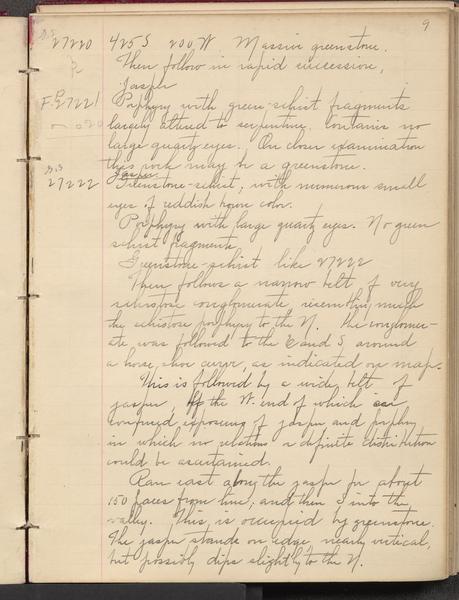 9
G.S. 27220 425 S 200 W Massive greenstone.
Then follow in rapid succession,
Jasper
F.P. 27221 Porphyry with green-schist fragments
largely altered to serpentine. Contains no
large quartz eyes. On closer examination
this rock may be a greenstone.
Jasper
G.S. 27222 Greenstone-schist, with numerous small
eyes of reddish brown color.
Porphyry with large quartz eyes. No green
schist fragments.
Greenstone-schist like 27222
Then follows a narrow belt of very
schistose conglomerate, resembling much
the schistose porphyry to the N. The conglomer-
ate was followed to the E and S, around
a horse shoe curve, as indicated on map.
This is followed by a wide belt of
jasper, the W. end of which
confused exposures of jasper and porphry
in which no relations or definite distribution
could be ascertained.
Ran east along the jasper for about
150 paces from line, and then S into the
valley. This is occupied by greenstone.
The jasper stands on edge, nearly vertical,
but possibly dips slightly to the N.